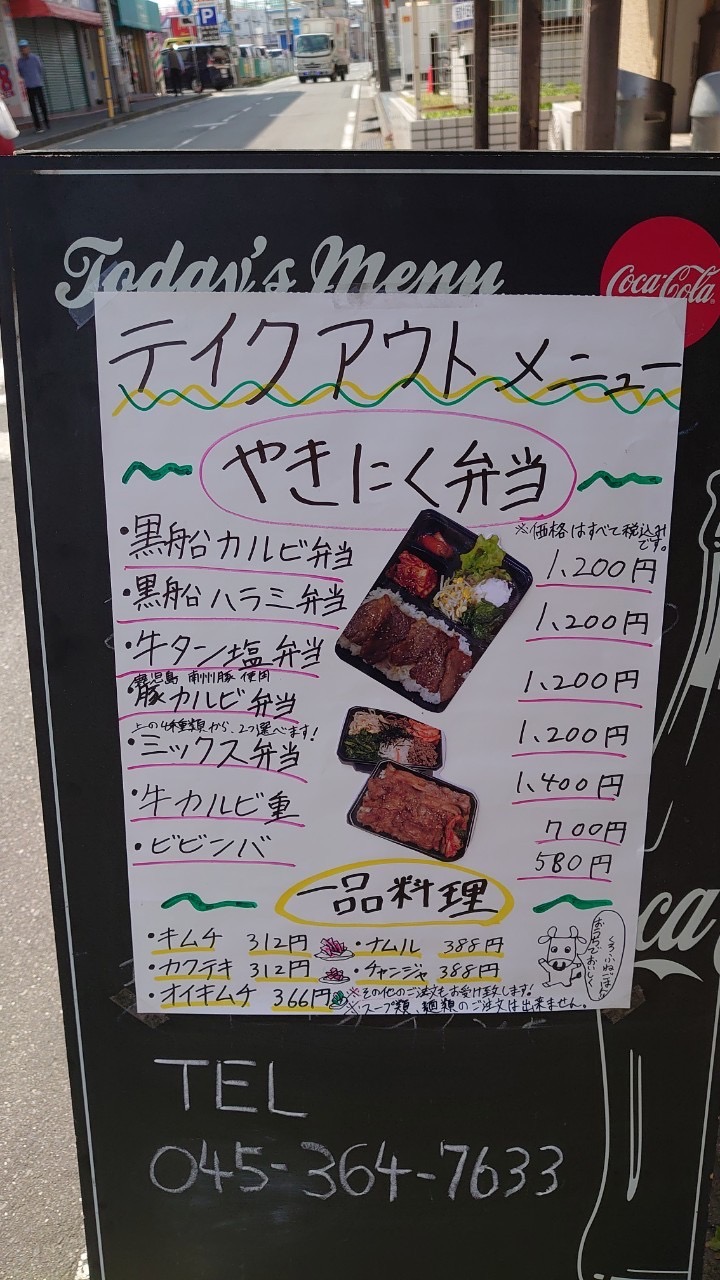 Today's Menu
Coca-Cola
テイクアウトメニュー
やきにく弁当
※価格はすべて税込みです。
・黒船カルビ弁当 1,200円
・黒船ハラミ弁当 1,200円
・牛タン塩弁当 1,200円
鹿児島 南州豚使用
・豚カルビ弁当 1,200円
上の4種類から、2つ選べます!
・ミックス弁当 1,400円
・牛カルビ重 700円
・ビビンバ 580円
一品料理
・キムチ 312円 ・ナムル 388円
・カクテキ 312円 ・チャンジャ 388円
・オイキムチ 366円
※その他のご注文もお受け致します!
※スープ類、麺類のご注文は出来ません。
くろふねごはん
おうちでおいしく
TEL
045-364-7633